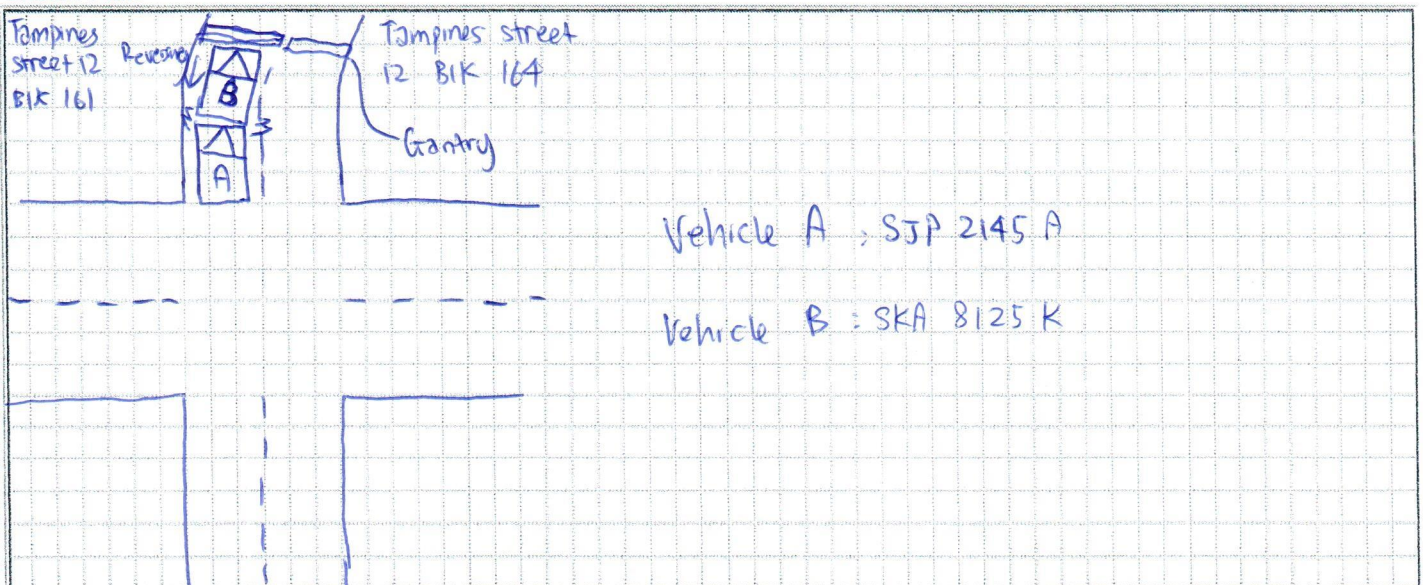 Tampines
street 12
Blk 161
Reversing
B
A
Tampines street
12 Blk 164
Gantry
Vehicle A : SJP 2145 A
Vehicle B : SKA 8125 K